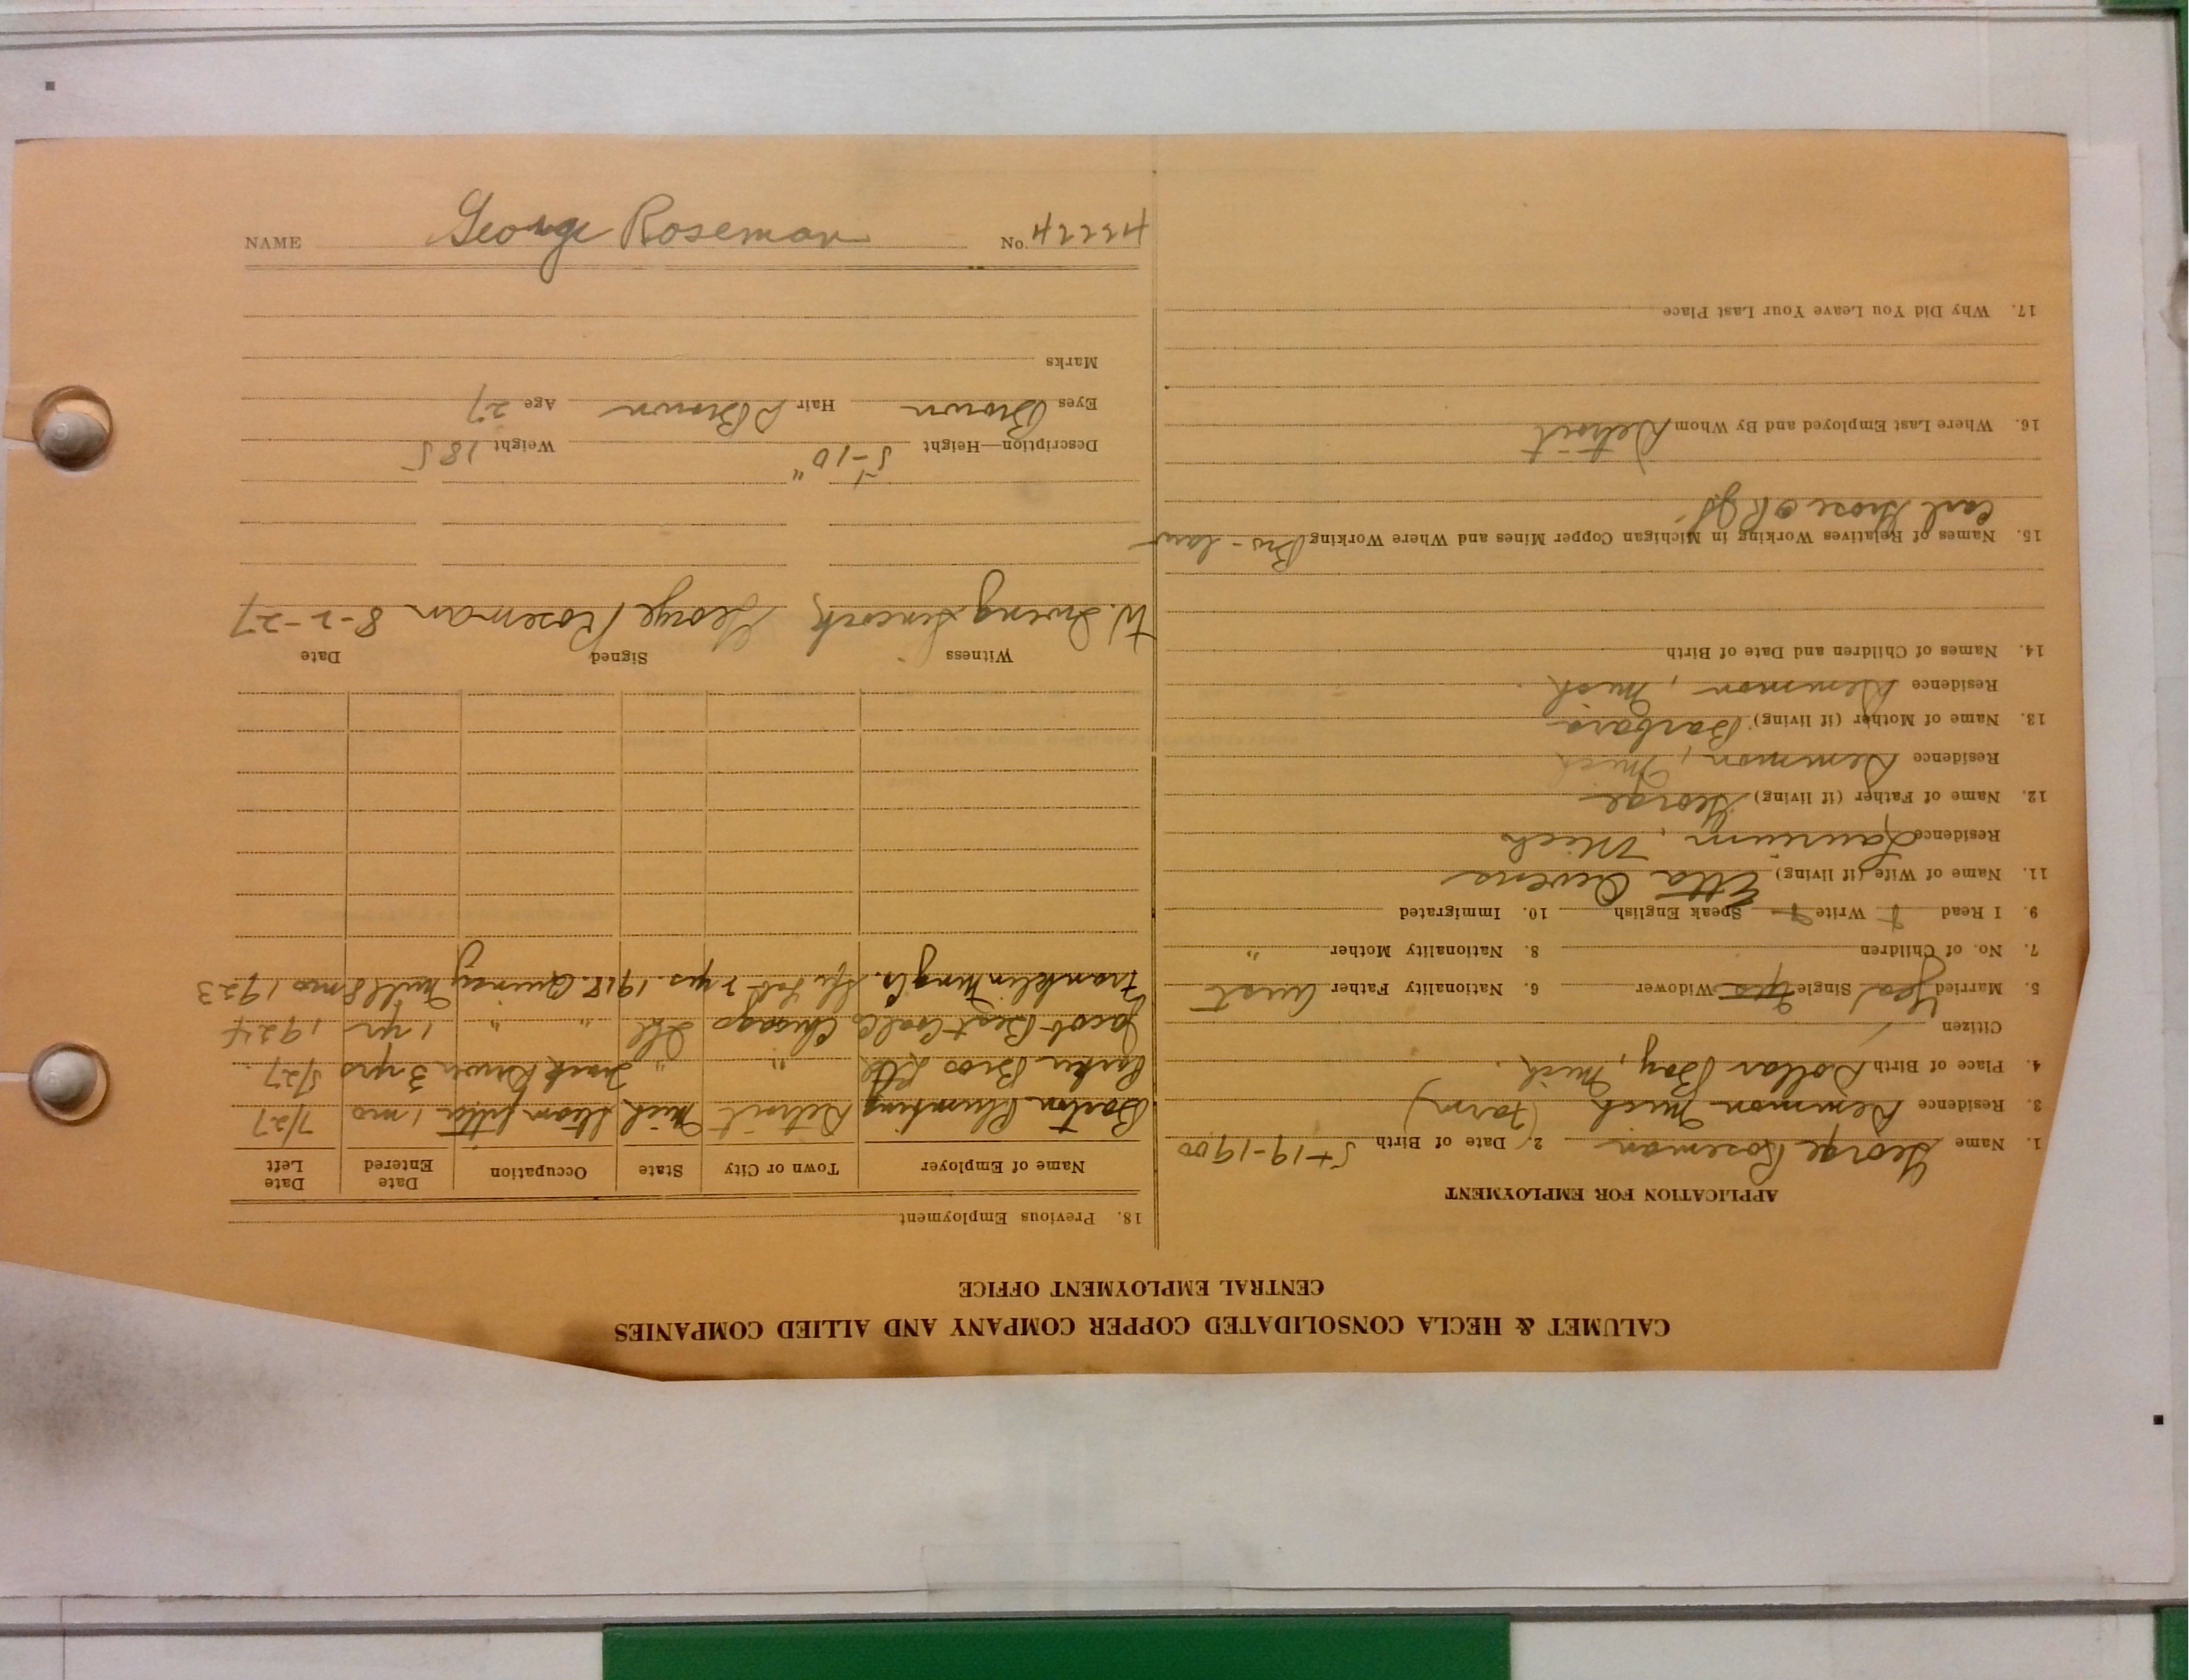 CALUMET & HECLA CONSOLIDATED COPPER COMPANY AND ALLIED COMPANIES
CENTRAL EMPLOYMENT OFFICE
APPLICATION FOR EMPLOYMENT
1. Name George Roseman 2. Date of Birth 5-19-1900
3. Residence Demmon Mich (Farm)
4. Place of Birth Dollar Bay, Mich.
Citizen
5. Married Yes Single yes Widower 6. Nationality Father Aust
7. No. of Children 8. Nationality Mother "
9. I Read Write Speak English 10. Immigrated
11. Name of Wife (if living) Etta Owens
Residence Laurium, Mich
12. Name of Father (if living) George
Residence Demmon, Mich
13. Name of Mother (if living) Barbara
Residence Demmon, Mich.
14. Names of Children and Date of Birth
15. Names of Relatives Working in Michigan Copper Mines and Where Working Bro-law
Carl
16. Where Last Employed and By Whom Detroit
17. Why Did You Leave Your Last Place
18. Previous Employment
Name of Employer Town or City State Occupation Date Entered Date Left
Barton Plumbing Detroit Mich Steam fitter 1 mo 7/27
Parker Bros " " Truck Driver 3 yrs 5/27
Jacob Best Coal Co Chicago Ill " " 1 yr 1924
Franklin Mng Co. 2 yrs. 1918. Quincy Mill 8 mo 1923
Witness Signed Date
W. Irving George Roseman 8-2-27
Description—Height 5-10" Weight 185
Eyes Brown Hair D Brown Age 27
Marks
NAME George Roseman No. 42224